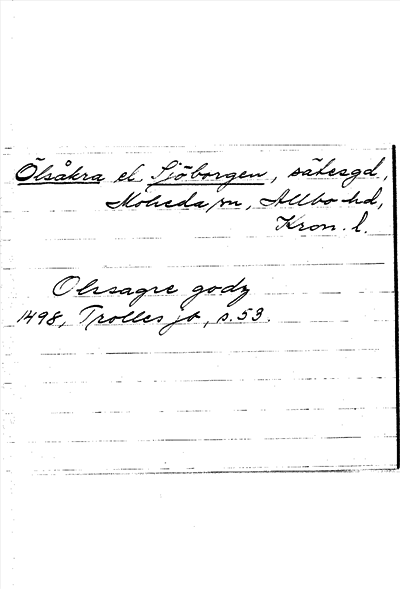 Ölsåkra el Sjöborgen, sätesgd,
Moheda sn, Allbo hd,
Kron. l.
Olssagre godz
1498, Trolles jb, s. 53.